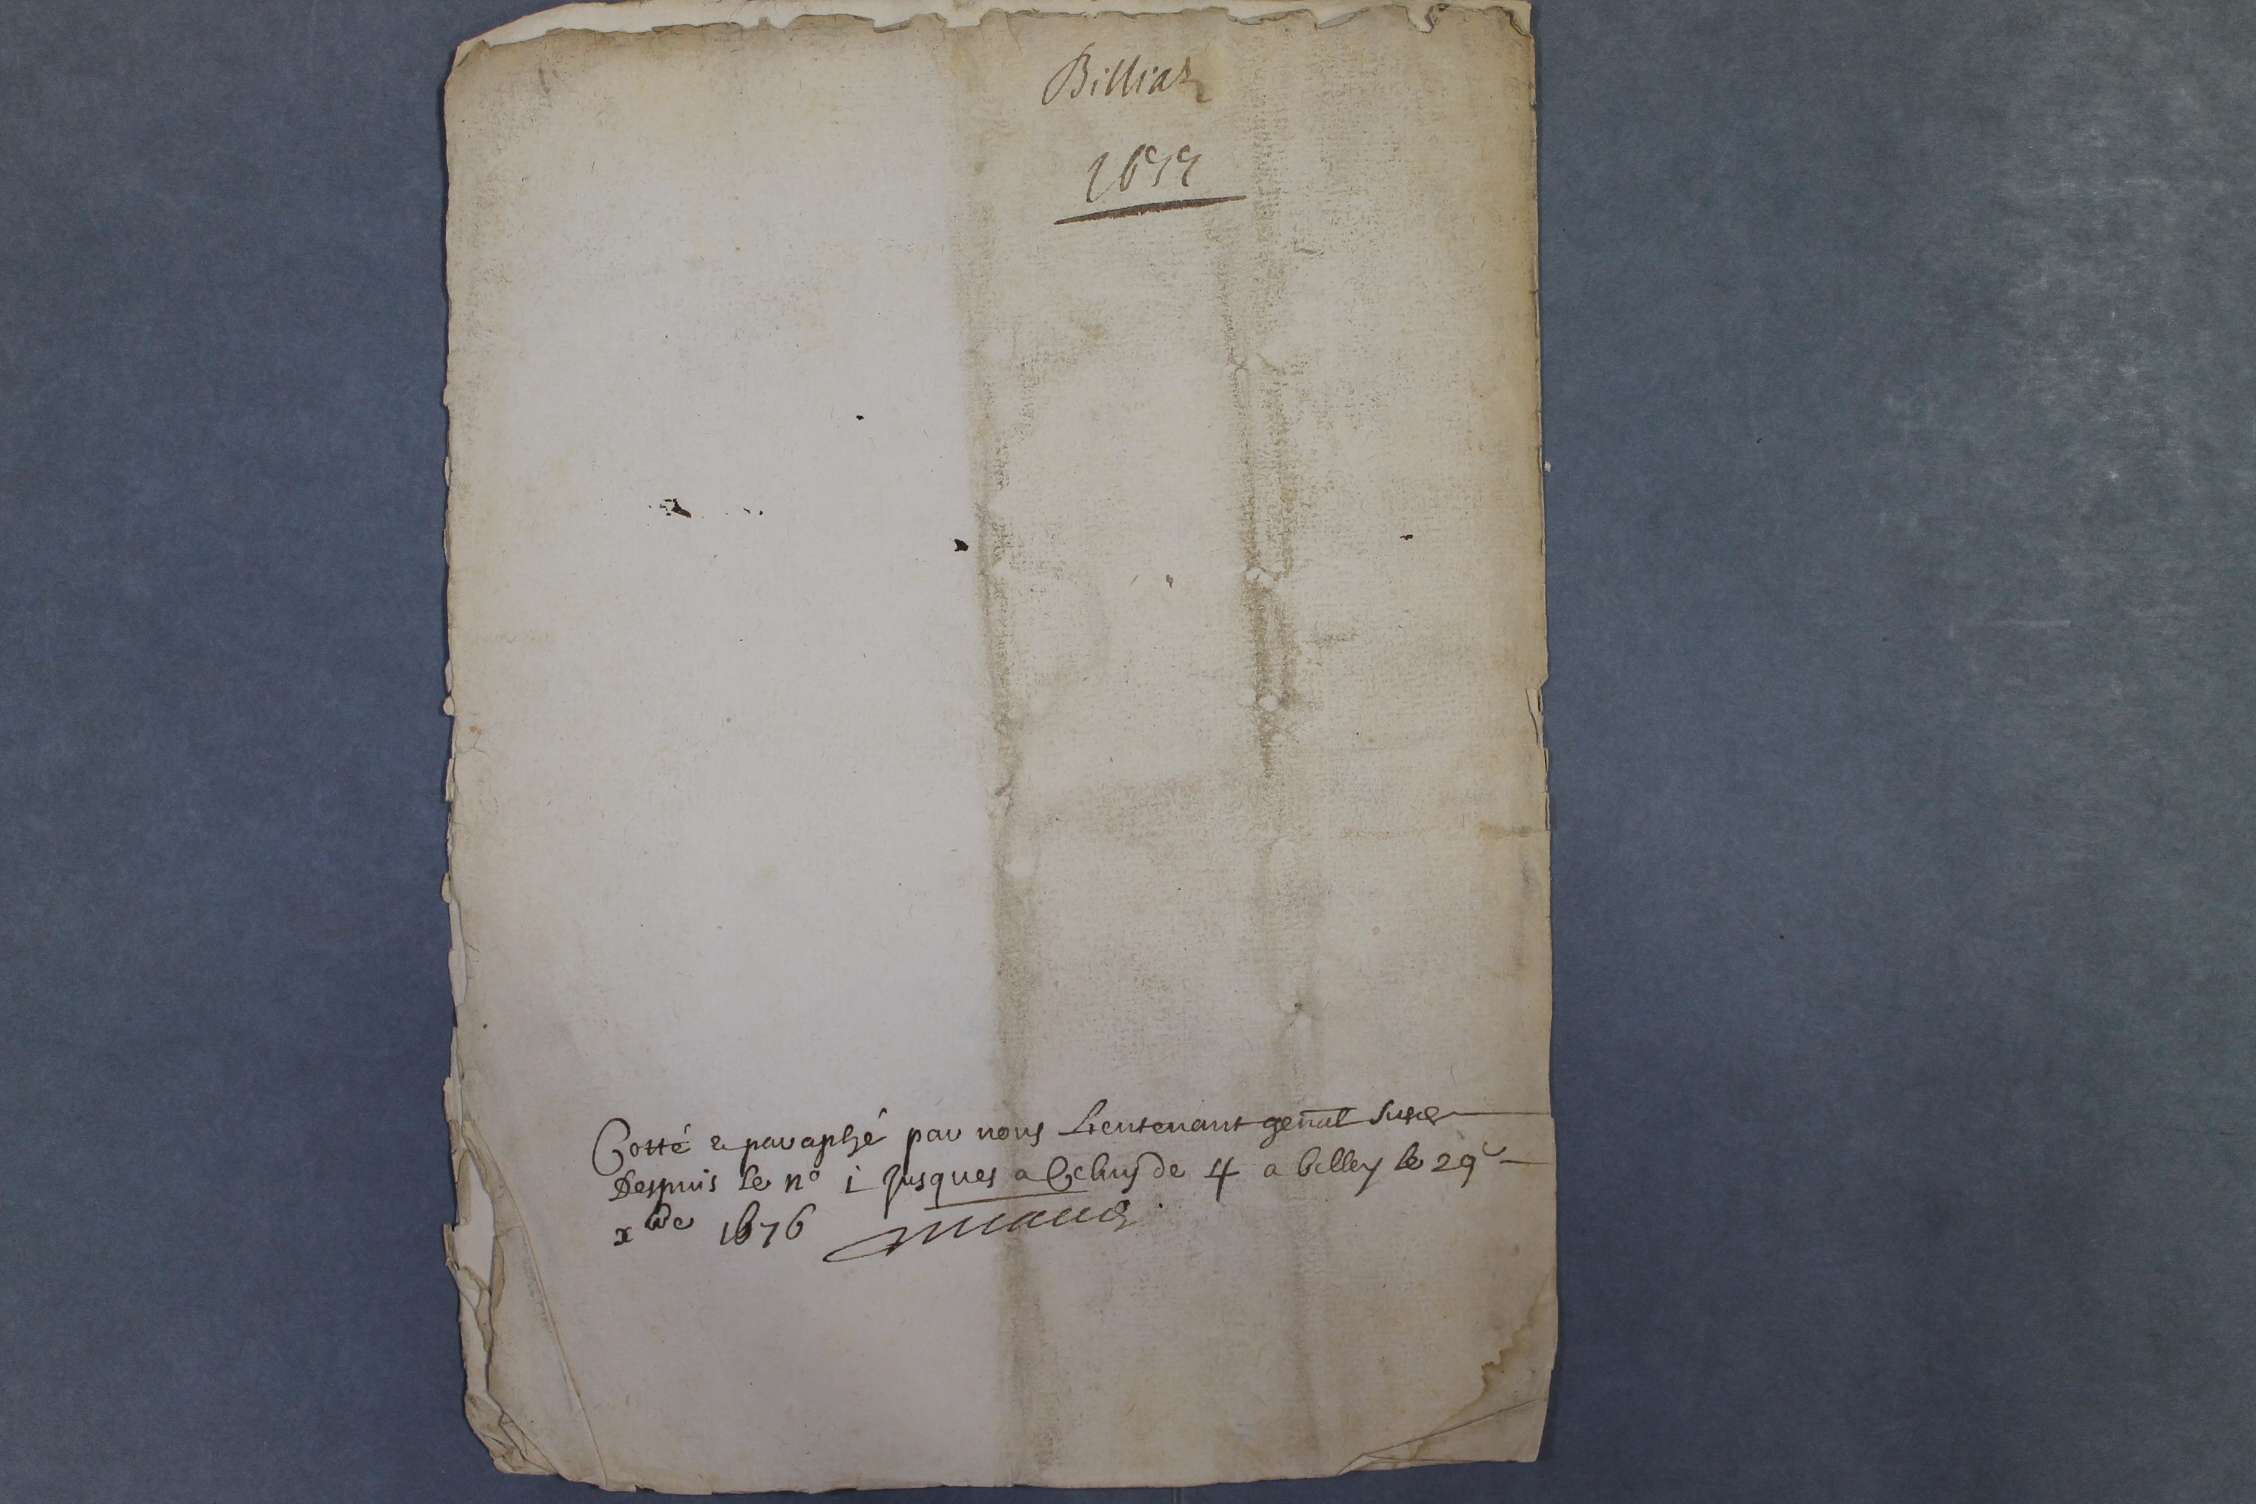 Billiat
1655
Cotté & paraphé par nous Lieutenant genãl susd
Despuis le nº i Jusques a Celuy de 4 a belley le 29e
xbre 1676